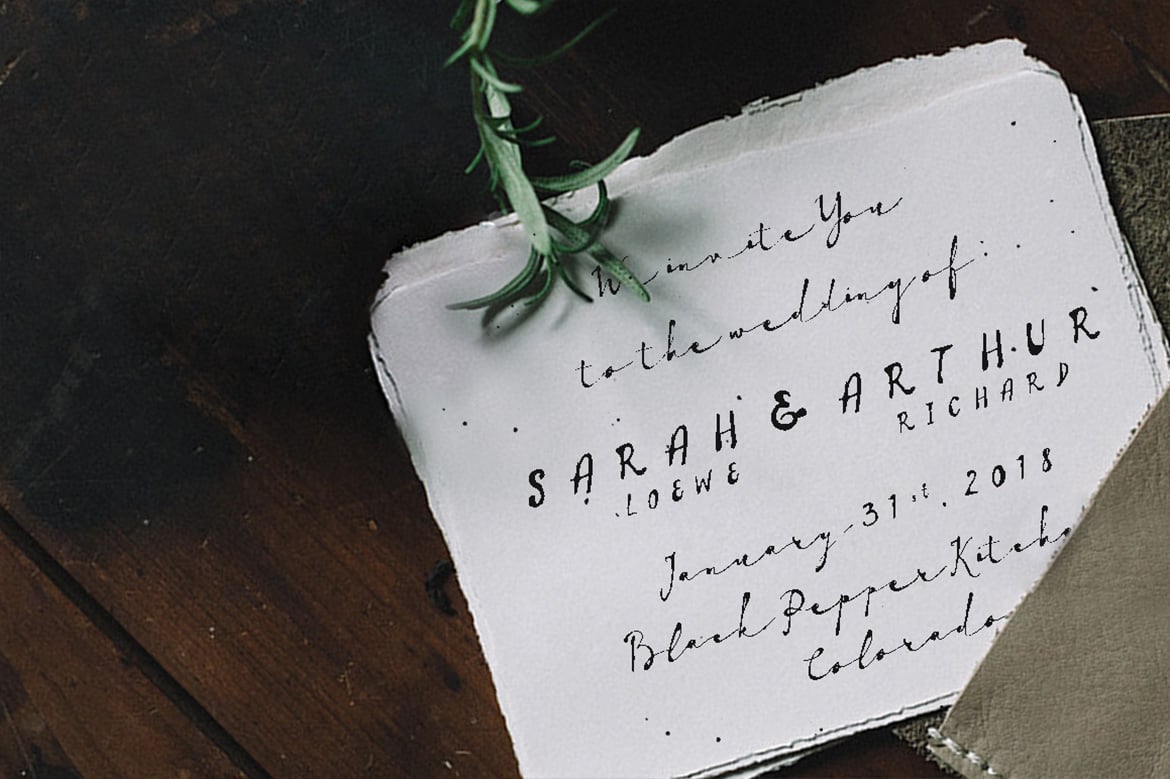 We invite You
to the wedding of:
SARAH & ARTHUR
LOEWE RICHARD
January 31st. 2018
Black Pepper Kitche
Colorado